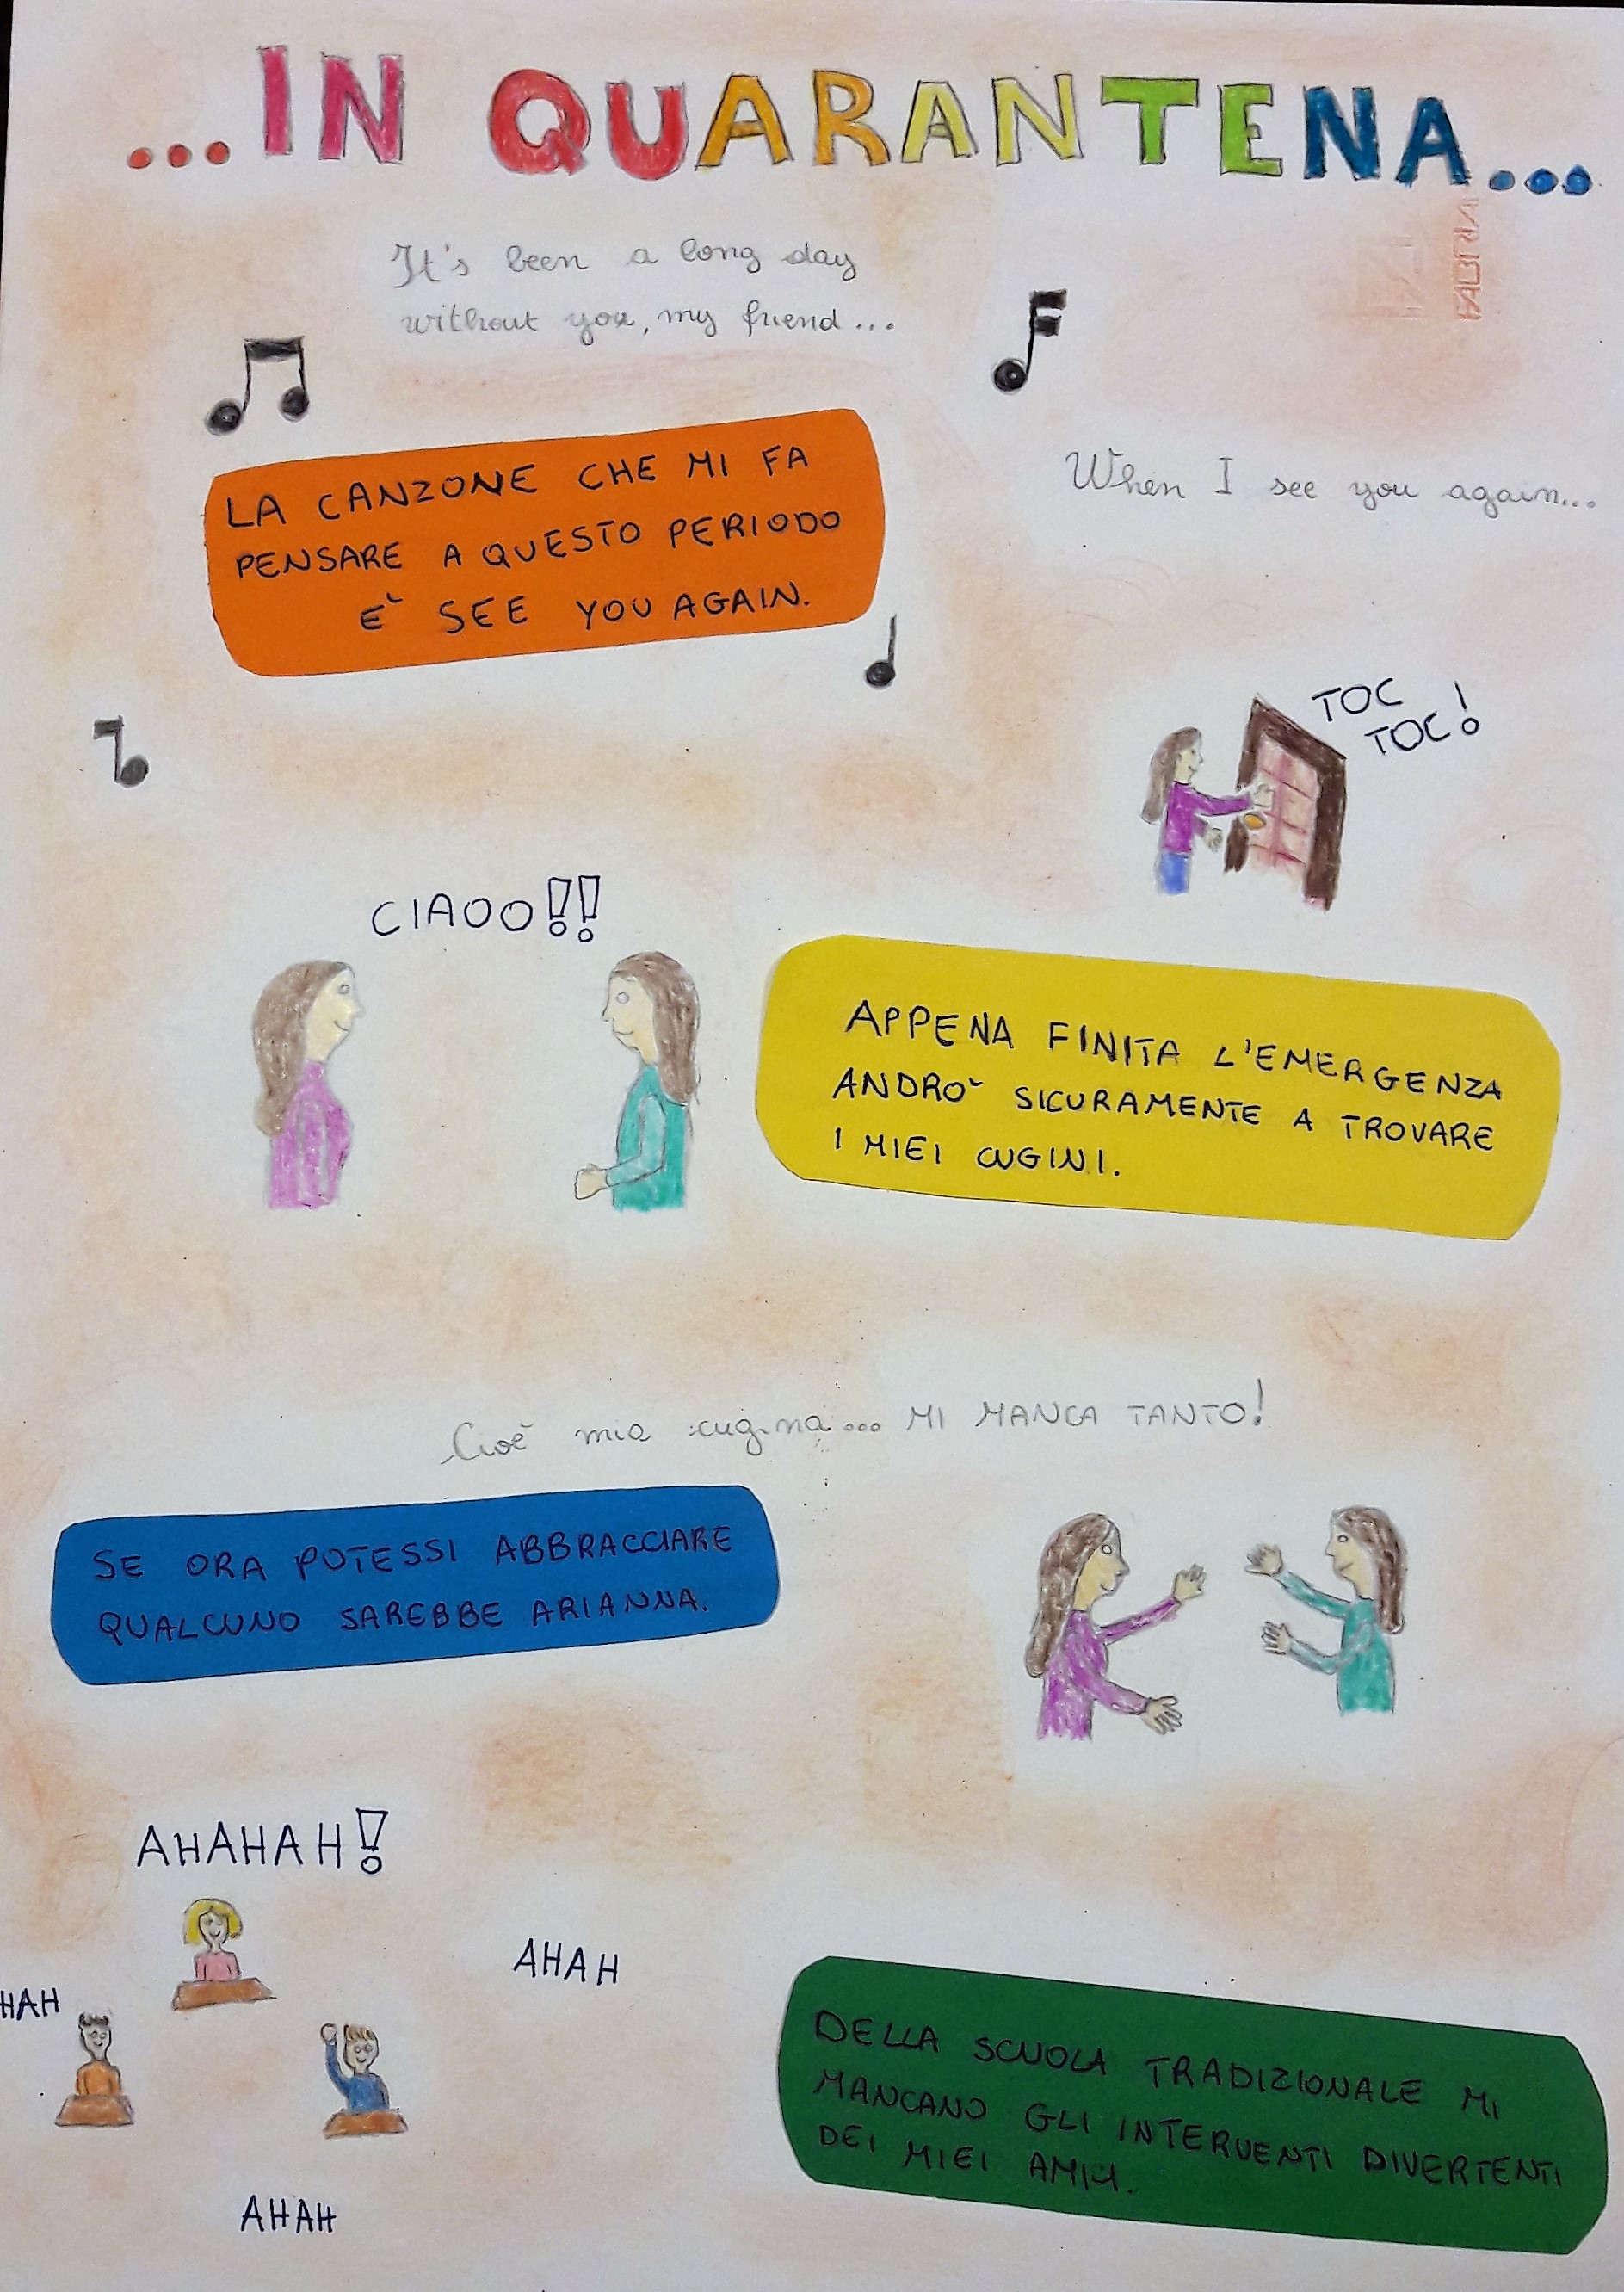 ...IN QUARANTENA...
It's been a long day
without you, my friend...
When I see you again...
LA CANZONE CHE MI FA
PENSARE A QUESTO PERIODO
E' SEE YOU AGAIN.
TOC
TOC!
CIAOO!!
APPENA FINITA L'EMERGENZA
ANDRO' SICURAMENTE A TROVARE
I MIEI CUGINI.
Cioè mia cugina... MI MANCA TANTO!
SE ORA POTESSI ABBRACCIARE
QUALCUNO SAREBBE ARIANNA.
AHAHAH!
AHAH
HAH
DELLA SCUOLA TRADIZIONALE MI
MANCANO GLI INTERVENTI DIVERTENTI
DEI MIEI AMICI.
AHAH
FABRIA